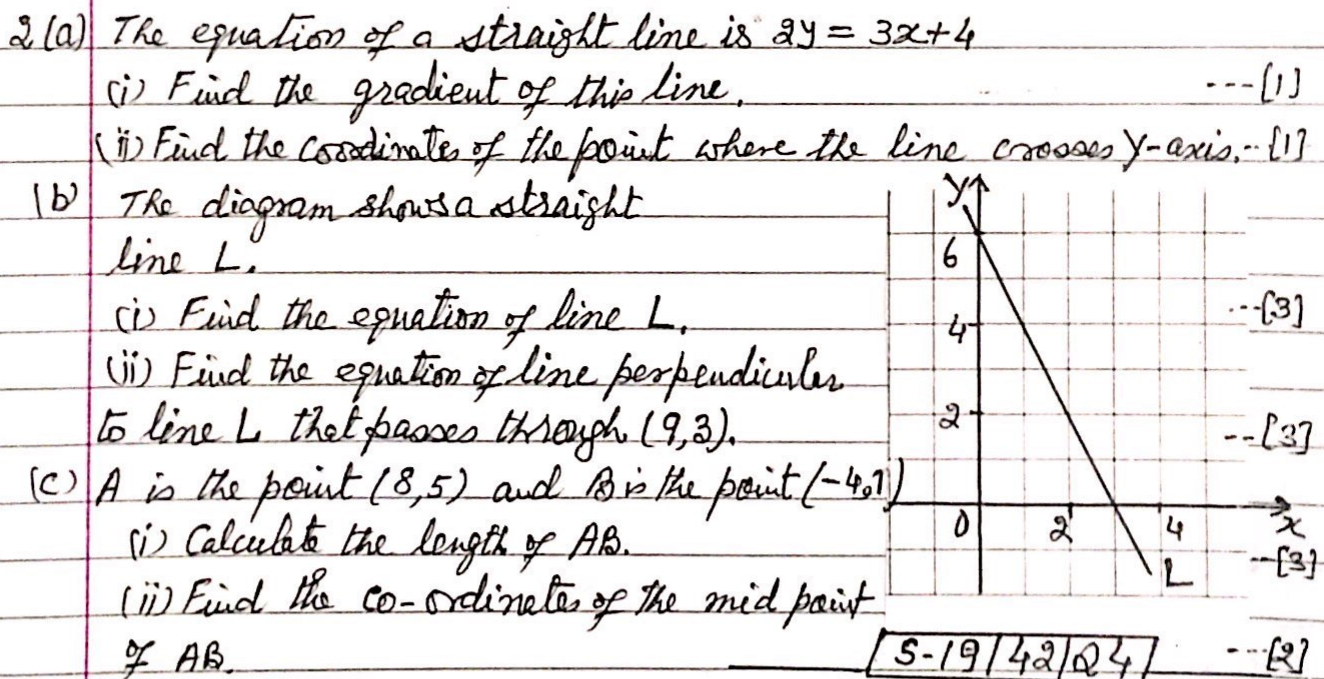 2(a) The equation of a straight line is 2y = 3x+4
(i) Find the gradient of this line. ---[1]
(ii) Find the coordinates of the point where the line crosses Y-axis.--[1]
(b) The diagram shows a straight
line L.
(i) Find the equation of line L. ---[3]
(ii) Find the equation of line perpendicular
to line L that passes through (9,3). --[3]
(c) A is the point (8,5) and B is the point (-4,1)
(i) Calculate the length of AB. --[3]
(ii) Find the co-ordinates of the mid point
of AB. ---[2]
y
6
4
2
0 2 4 x
L
S-19/42/Q4